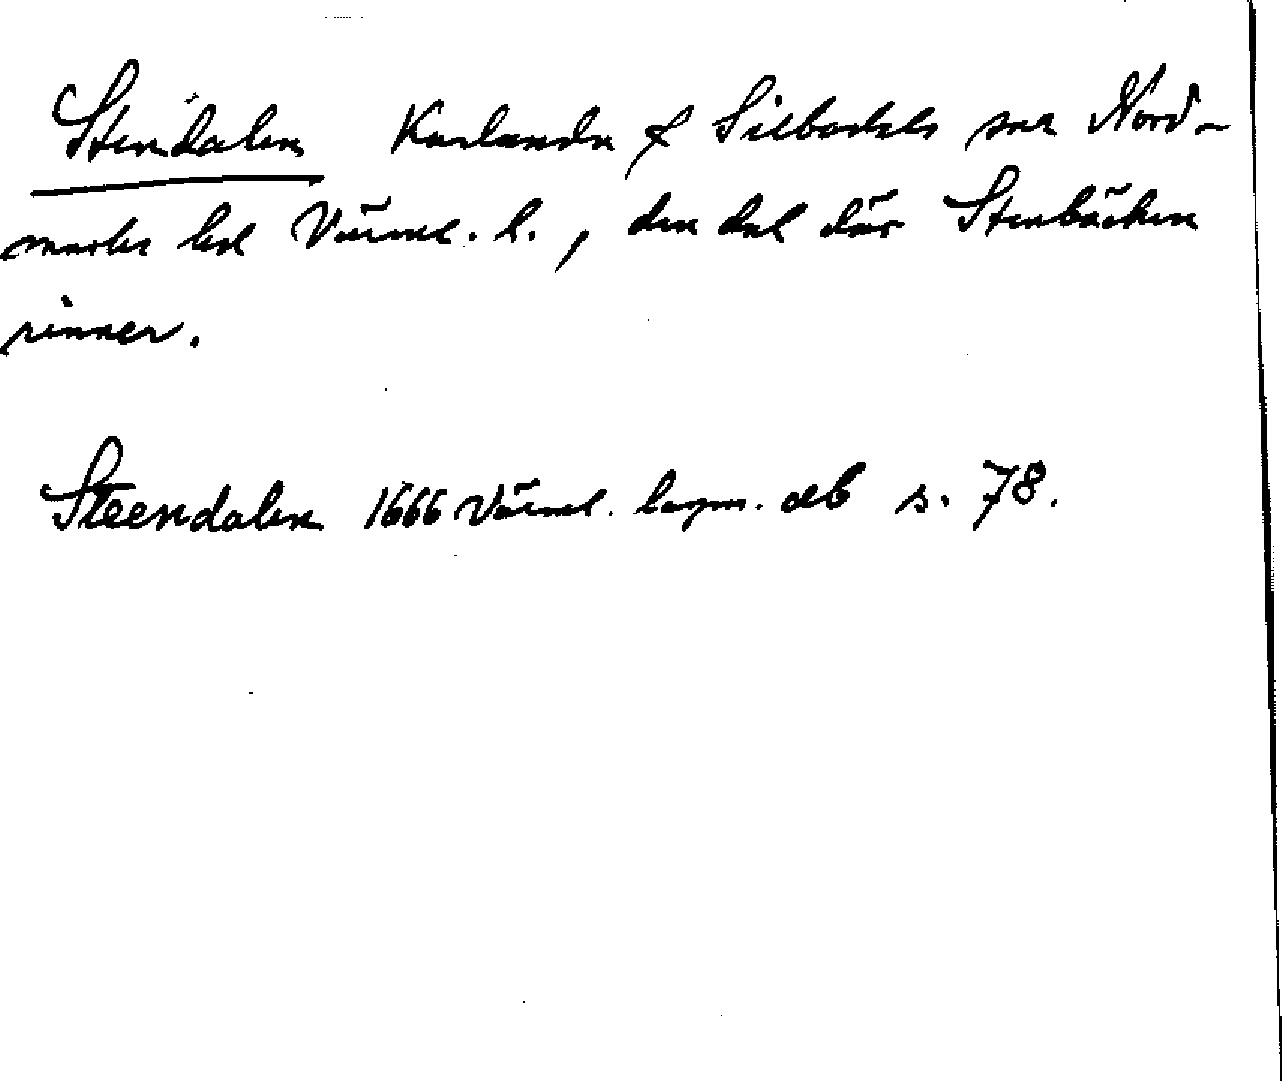 Stendalen Karlanda o Silbodals snr Nord-
marks hd Värml. l., den dal där Stenbäcken
rinner.
Steendalen 1666 Värml. lagm. db s. 78.